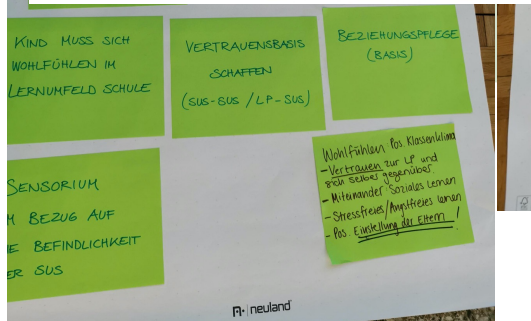 KIND MUSS SICH
WOHLFÜHLEN IM
LERNUMFELD SCHULE
VERTRAUENSBASIS
SCHAFFEN
(SUS-SUS / LP-SUS)
BEZIEHUNGSPFLEGE
(BASIS)
SENSORIUM
BEZUG AUF
BEFINDLICHKEIT
SUS
Wohlfühlen: Pos. Klassenklima
- Vertrauen zur LP und
sich selber gegenüber.
- Miteinander: Soziales Lernen
- Stressfreies/Angstfreies lernen
- Pos. Einstellung der Eltern!
neuland